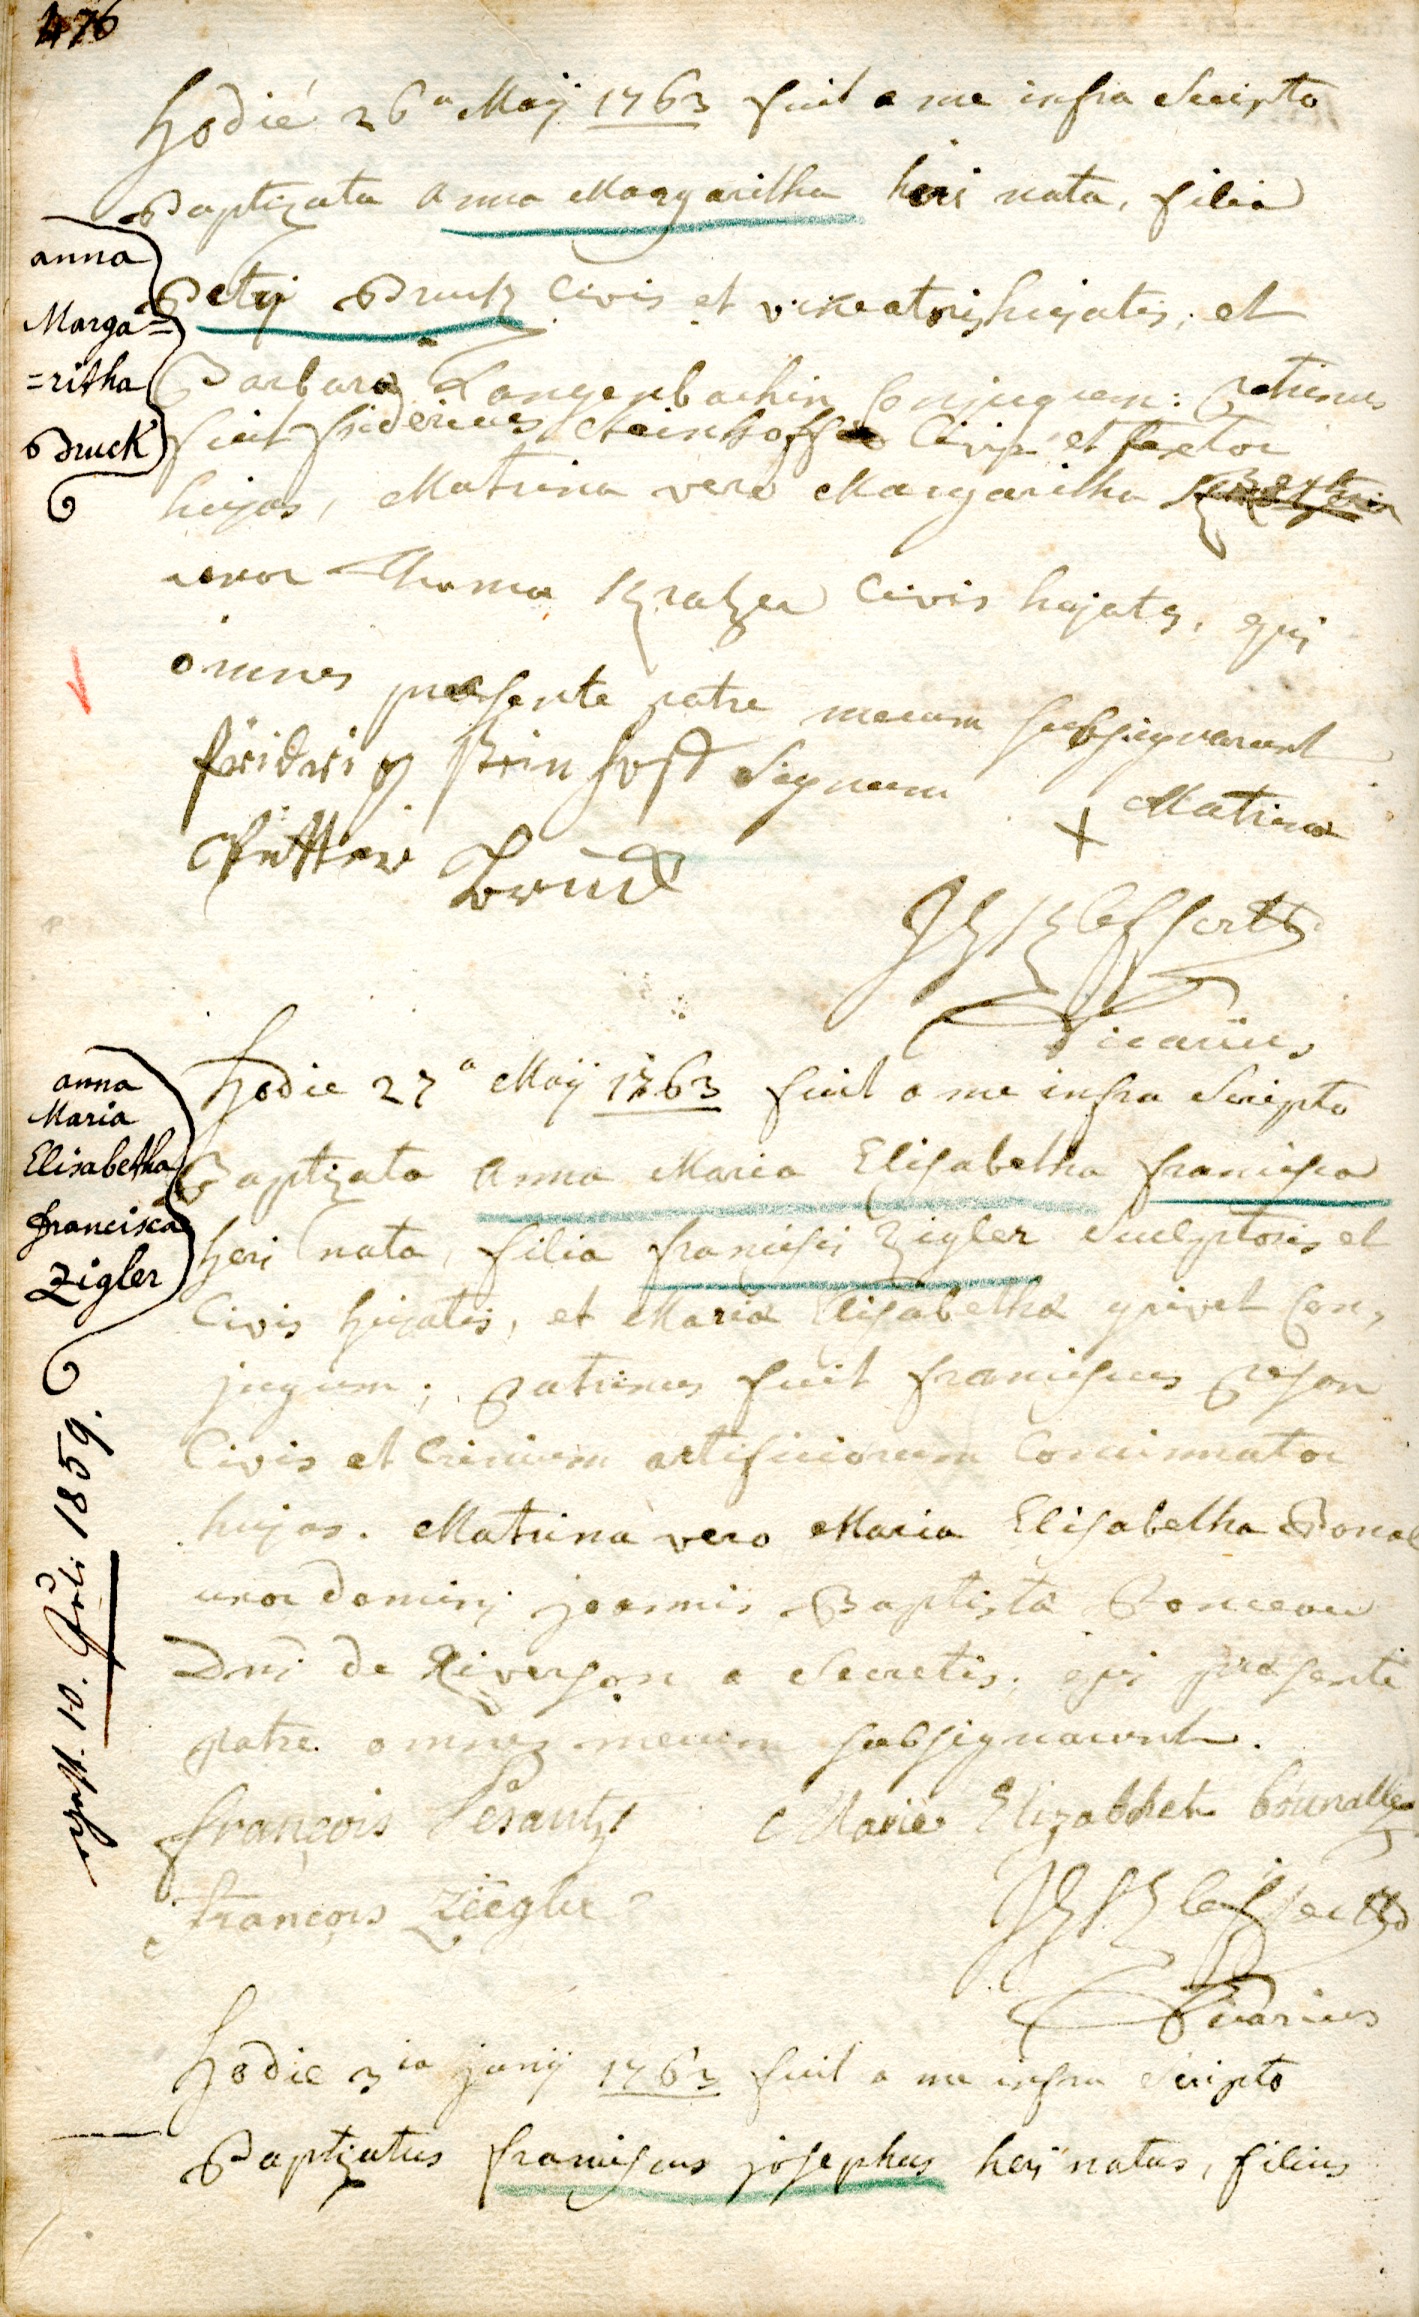 476
Hodie 26a Maij 1763 fuit a me infra Scripto
Baptizata Anna Margaritha heri nata, filia
anna
Marga=
=ritha
Bruck
Petrj Bruck Civis et vineatoris hujatis, et
Barbara Langenbachin Conjugum: Patrinus
fuit fridericus Steinhoff Civis et textor
hujas, Matrina vero Margaritha
uxor Thoma Kratzer Civis hujatis, qui
omnes præsente patre mecum subsignarunt
fridrig Steinhoff Signum + Matrinæ
Bruck
Vicarius
anna
Maria
Elisabetha
francisca
Zigler
Hodie 27a Maij 1763 fuit a me infra Scripto
Baptizata Anna Maria Elisabetha francisca
heri nata, filia francisci Zigler Sculptoris et
Civis hujatis, et Maria Elisabetha grivet Con,
jugum; Patrinus fuit franciscus
Civis et Crinium artificiorum Concinnator
hujas. Matrina vero Maria Elisabetha Bonal
uxor Dominj joannis Baptista Bonceau
Dni de a Secretis, qui præsente
patre omnes mecum subsignarunt.
10. 1859.
françois Marie Elizabhet
françois Ziegler
Vicarius
Hodie 3ia junij 1763 fuit a me infra Scripto
Baptizatus franciscus josephus heri natus, filius